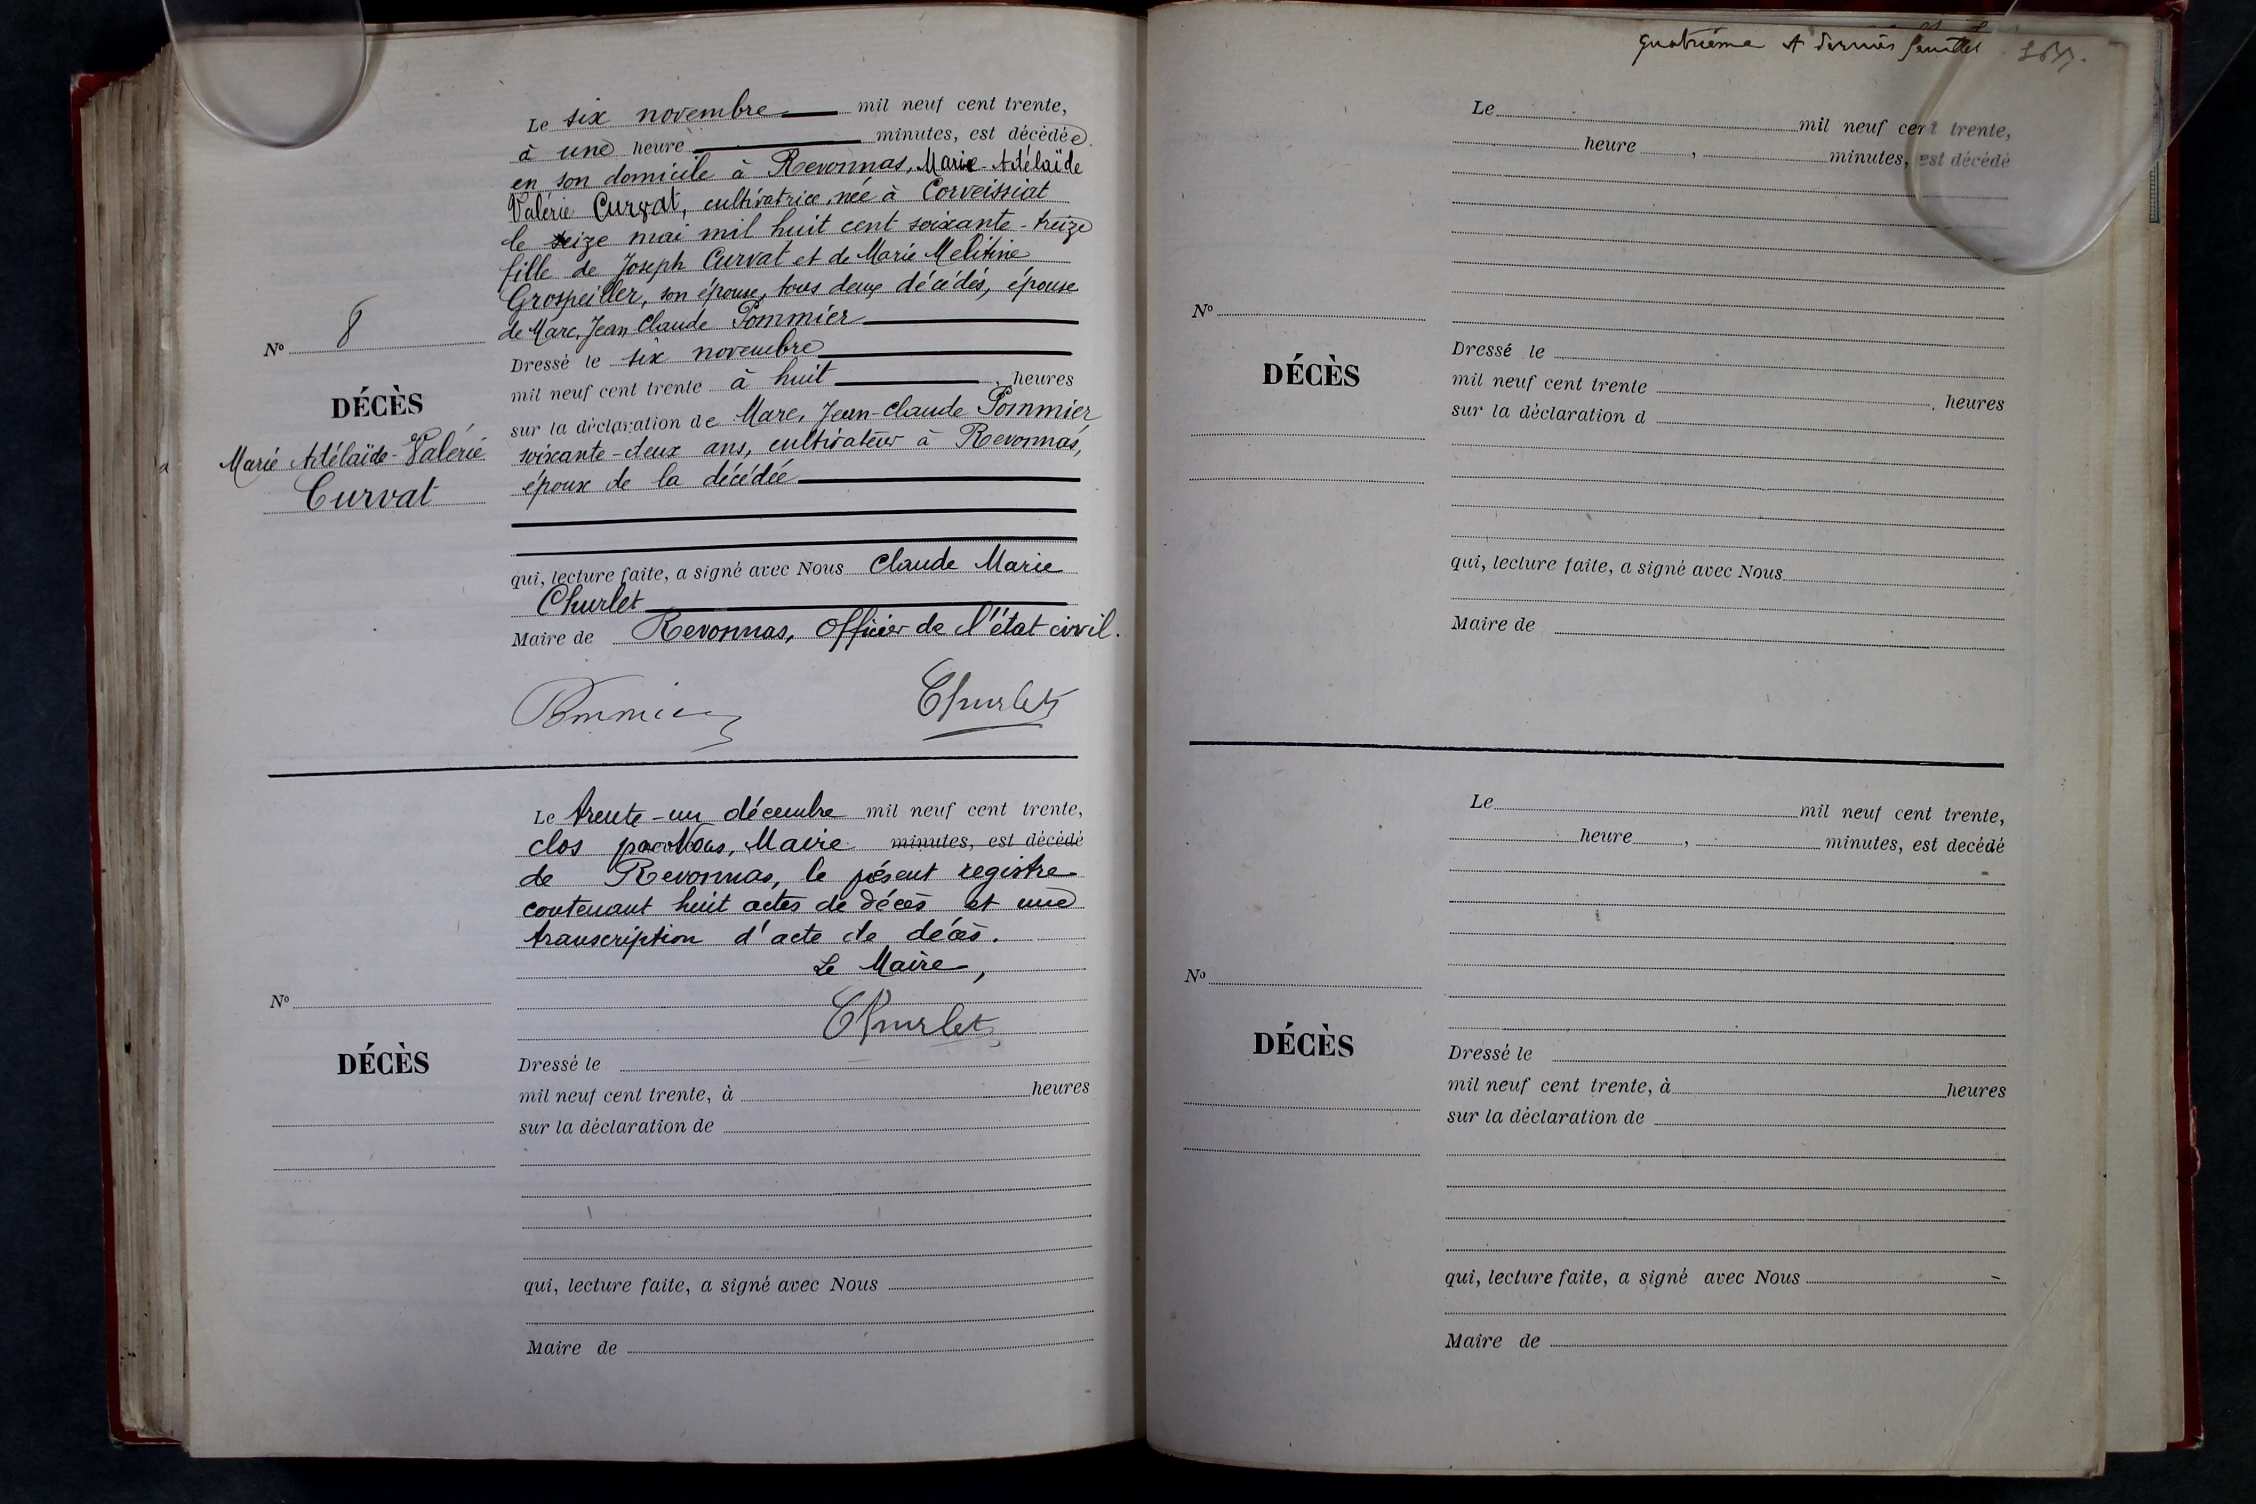 Le six novembre mil neuf cent trente,
à une heure minutes, est décédée
en son domicile à Revonnas, Marie Adélaïde
Valérie Curvat, cultivatrice, née à Corveissiat
le seize mai mil huit cent soixante-treize
fille de Joseph Curvat et de Marie Melitine
Grospeiller, son épouse, tous deux décédés, épouse
de Marc, Jean Claude Pommier
Dressé le six novembre
mil neuf cent trente à huit , heures
sur la déclaration de Marc, Jean-Claude Pommier
soixante-deux ans, cultivateur à Revonnas,
époux de la décédée
qui, lecture faite, a signé avec Nous Claude Marie
Churlet
Maire de Revonnas, Officier de l'état civil.
Nº 8
DÉCÈS
Marie Adélaïde-Valérie
Curvat
Pommier Churlet
Le trente-un décembre mil neuf cent trente,
clos par Nous, Maire minutes, est décédé
de Revonnas, le présent registre
contenant huit actes de décès et une
transcription d'acte de décès.
Le Maire,
Churlet
Nº
DÉCÈS
Dressé le
mil neuf cent trente, à heures
sur la déclaration de
qui, lecture faite, a signé avec Nous
Maire de
quatrième et dernier feuillet
Le mil neuf cent trente,
heure , minutes, est décédé
Nº
DÉCÈS
Dressé le
mil neuf cent trente , heures
sur la déclaration d
qui, lecture faite, a signé avec Nous
Maire de
Le mil neuf cent trente,
heure , minutes, est decédé
Nº
DÉCÈS
Dressé le
mil neuf cent trente, à heures
sur la déclaration de
qui, lecture faite, a signé avec Nous
Maire de